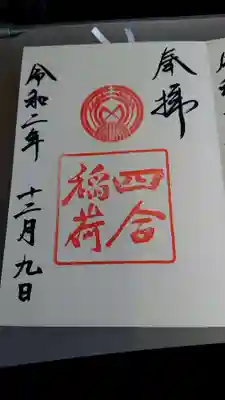 奉拝
四合
稲荷
令和二年 十二月九日